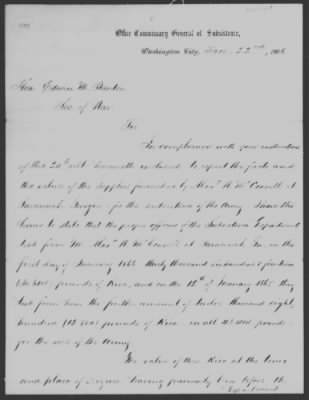 Office Commissary General of Subsistence,
Washington City, Jan. 22nd, 186
Hon. Edwin M. Stanton
Sec. of War.
Sir
In compliance with your instructions
of the 20th to report the facts
and the value of the supplies furnished by at
Savannah Georgia for the subsistence of the Army I have the
honor to state that the proper officers of the Subsistence Department
took from at Savannah Ga. on the
first day of January 1865 thirty thousand six hundred & fourteen
pounds of Rice, and on the 12th of January 1865 they
took from him the further amount of twelve thousand eight
hundred (12.800) pounds of Rice in all pounds
for the use of the Army.
The value of this Rice at the time
and place of seizure having previously been before the
Department